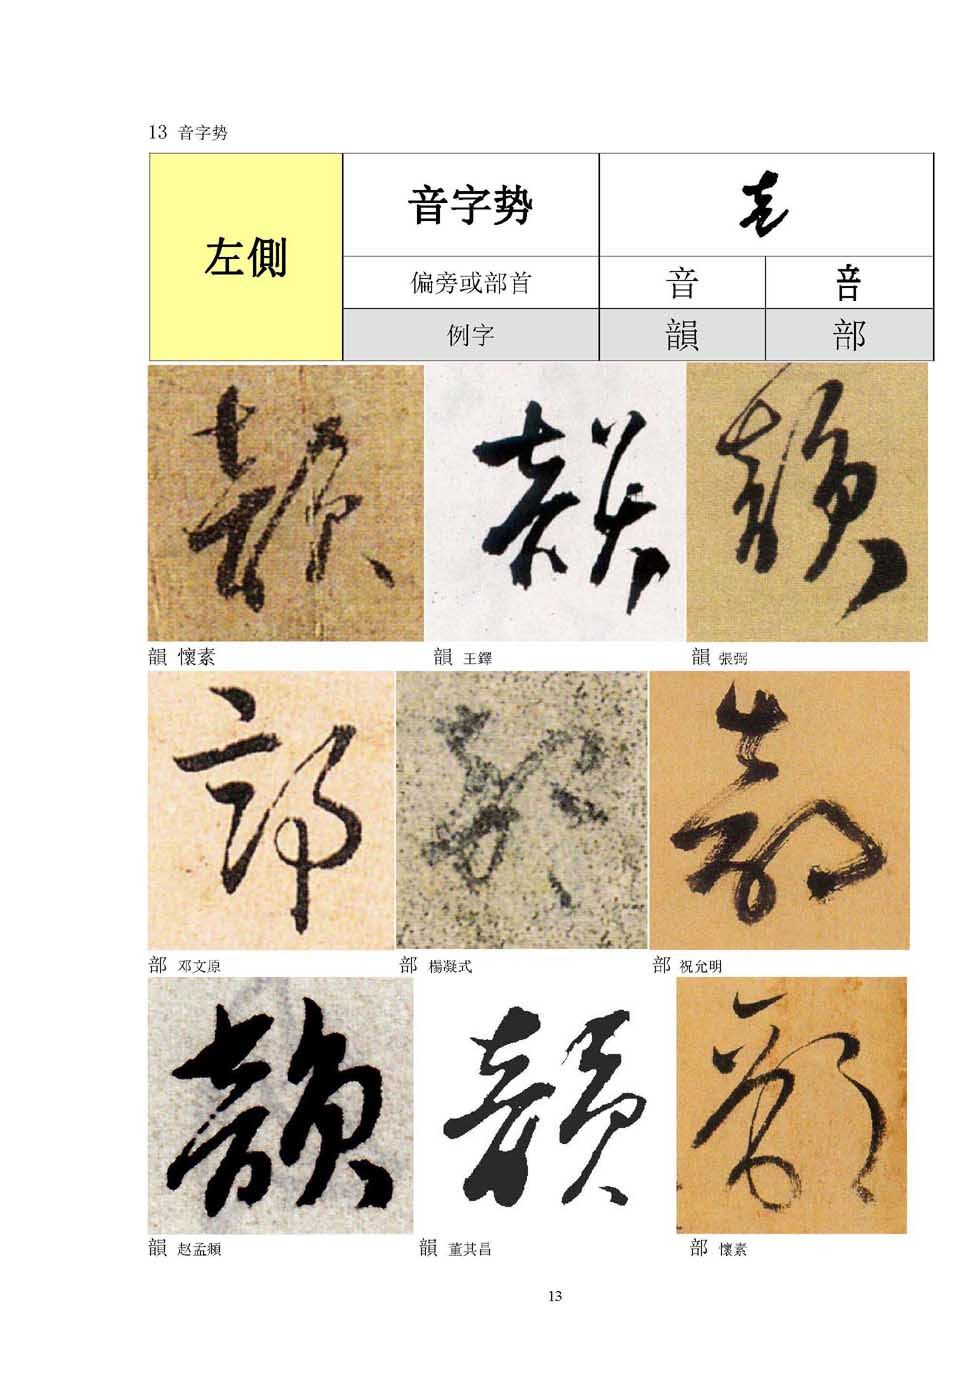 13 音字势
左側
音字势
偏旁或部首 音 咅
例字 韻 部
韻 懷素 韻 王鐸 韻 張弼
部 邓文原 部 楊凝式 部 祝允明
韻 赵孟頫 韻 董其昌 部 懷素
13